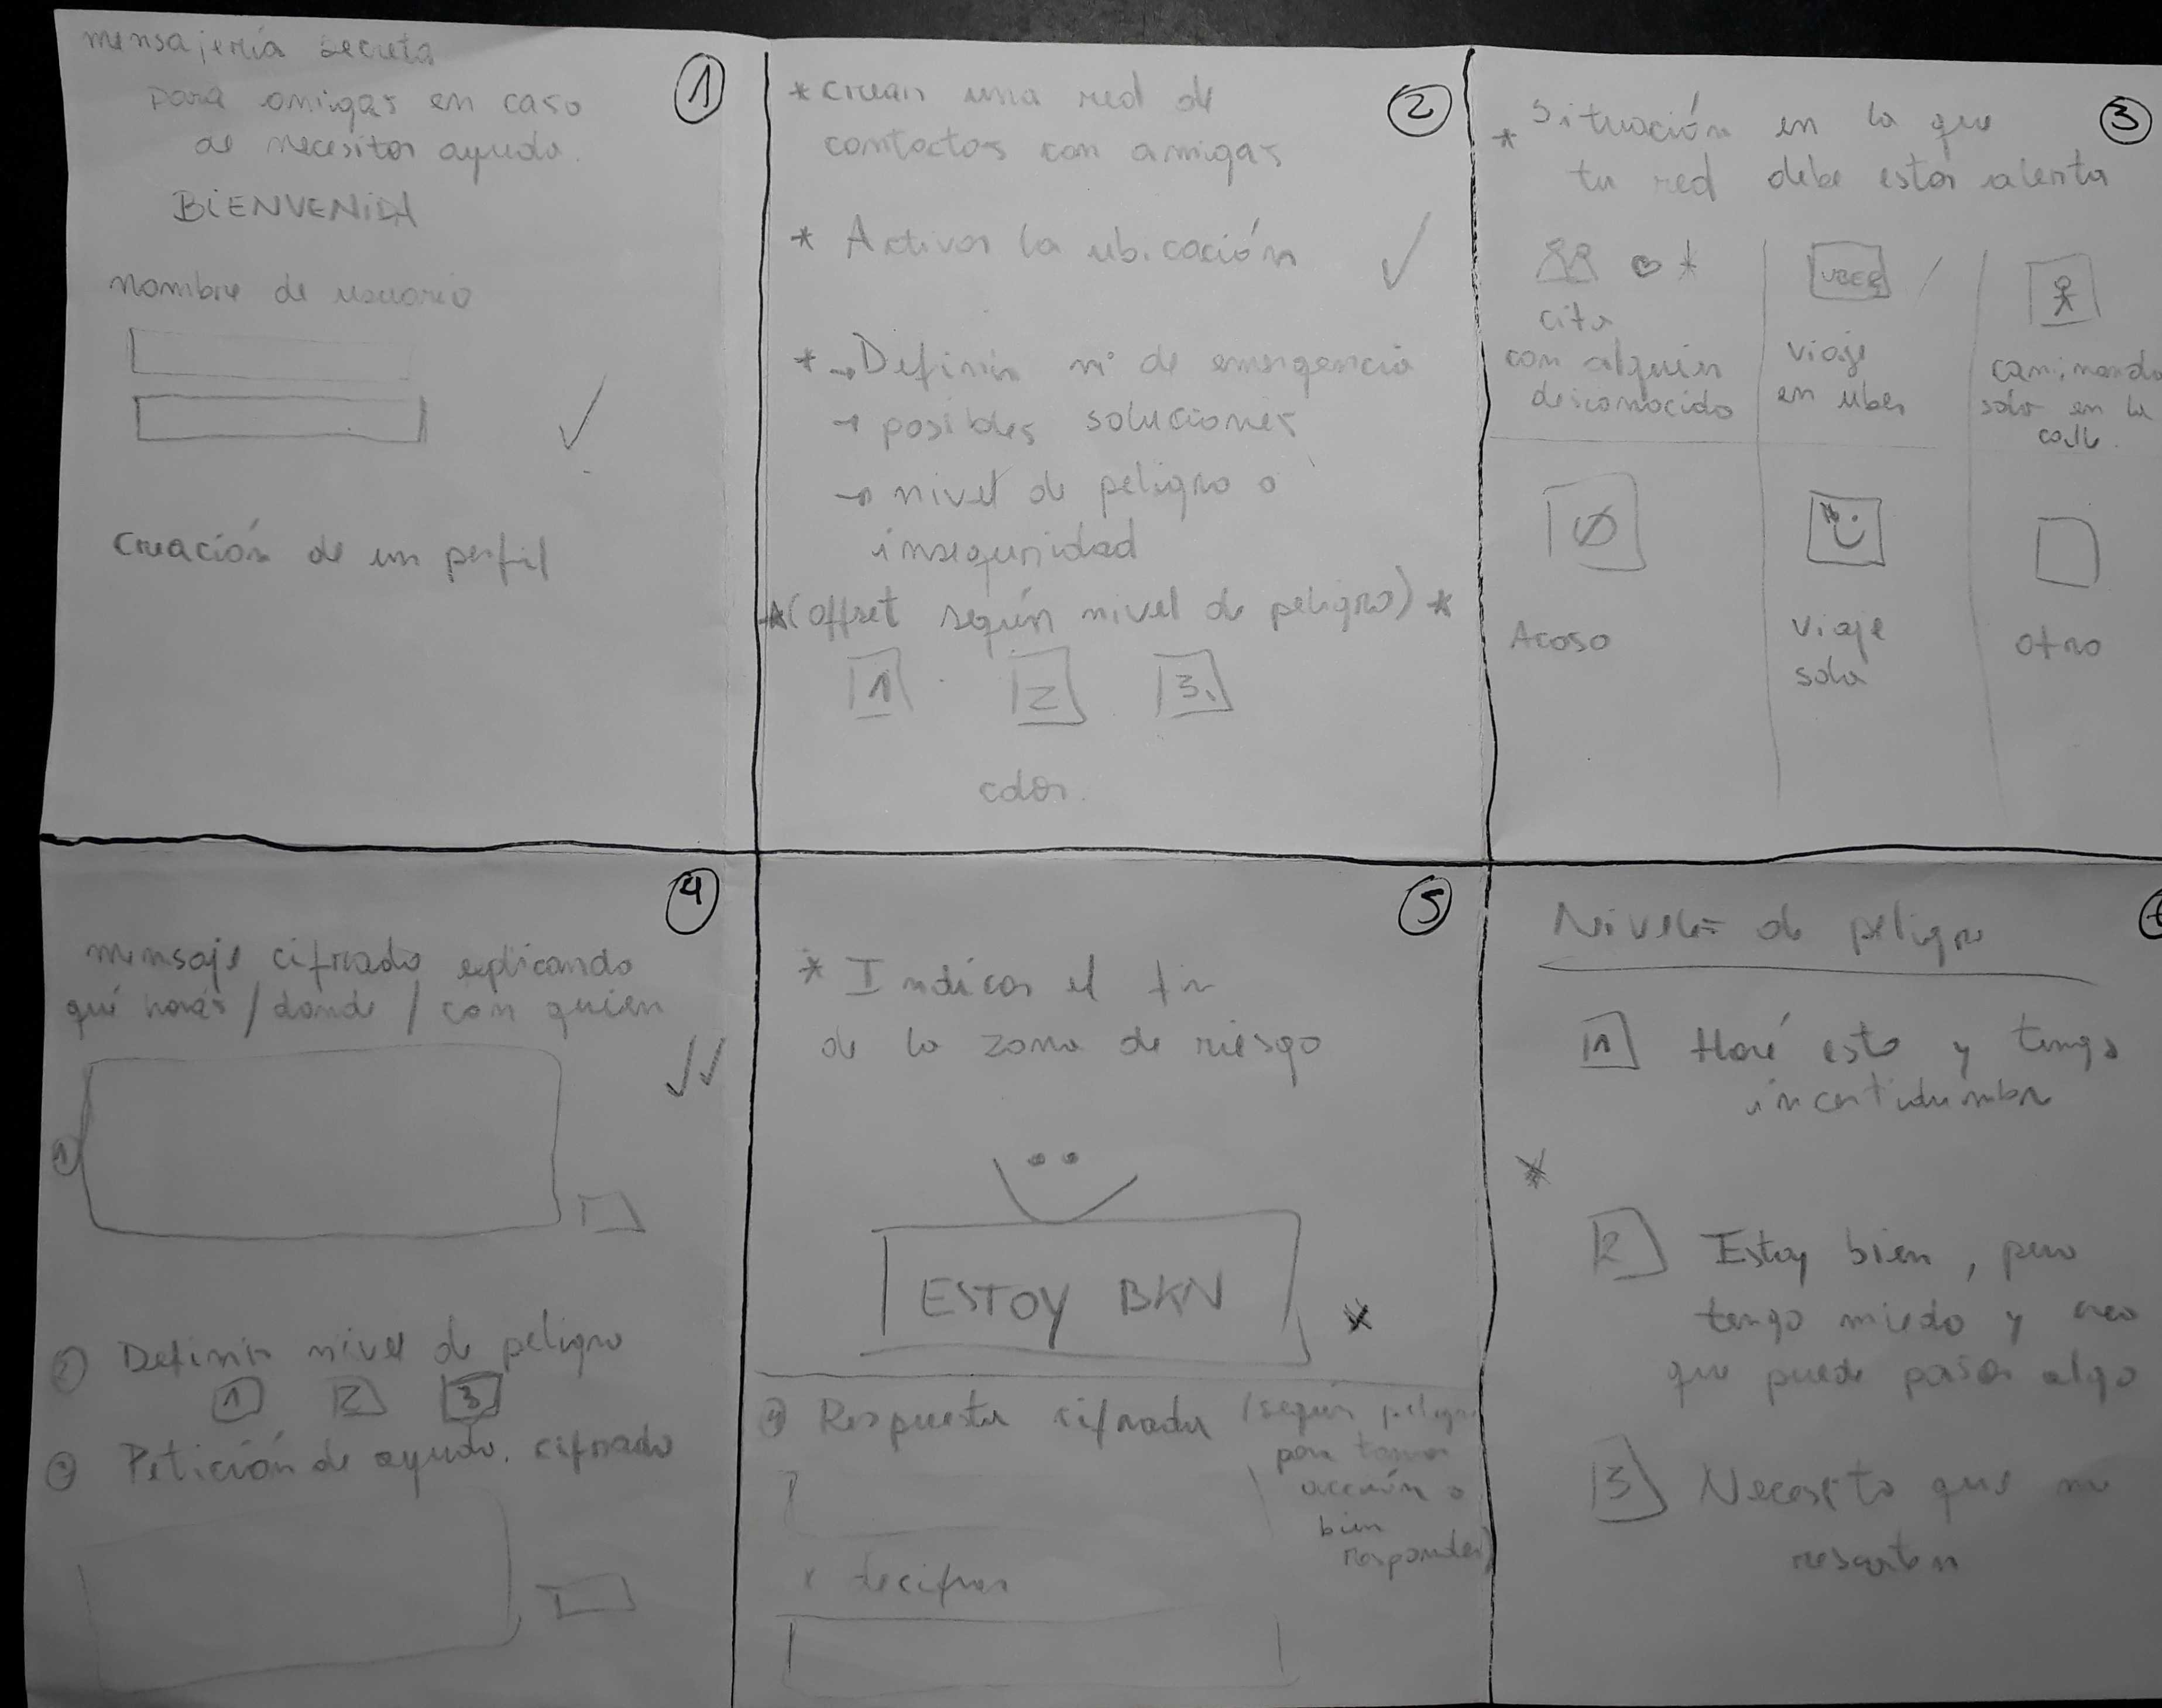 mensajería secreta
para amigas en caso
de necesitar ayuda.
BIENVENIDA
nombre de usuario
Creación de un perfil
1
* crear una red de
contactos con amigas
* Activar la ubicación
* → Definir nº de emergencia
→ posibles soluciones
→ nivel de peligro o
inseguridad
* (offset según nivel de peligro) *
1 2 3.
color.
2
* Situación en la que
tu red debe estar alerta
3
cita
con alguien
desconocido
UBER
viaje
en uber
caminando
sola en la
calle.
Acoso
viaje
sola
otro
4
mensaje cifrado explicando
qué harás / donde / con quien
1
2 Definir nivel de peligro
1 2 3
3 Petición de ayuda. cifrado
5
* Indicar el fin
de la zona de riesgo
ESTOY BKN
*
4 Respuesta cifrada (según peligro
para tomar
acción o
bien
responder)
decifrar
Niveles de peligro
1 Haré esto y tengo
incertidumbre
*
2 Estoy bien, pero
tengo miedo y creo
que puede pasar algo
3 Necesito que me
rescaten